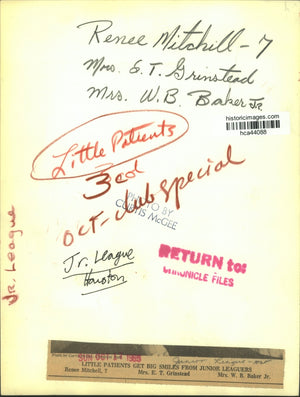 Renee Mitchill - 7
Mrs. E. T. Grinstead
Mrs. W. B. Baker Jr.
historicimages.com
hca44088
Little Patients
3 col
OCT- club special
PHOTO BY
CURTIS McGEE
Jr. League
Houston
Jr. League
RETURN to:
CHRONICLE FILES
SUN OCT 1965
LITTLE PATIENTS GET BIG SMILES FROM JUNIOR LEAGUERS
Renee Mitchell, 7 Mrs. E. T. Grinstead Mrs. W. B. Baker Jr.